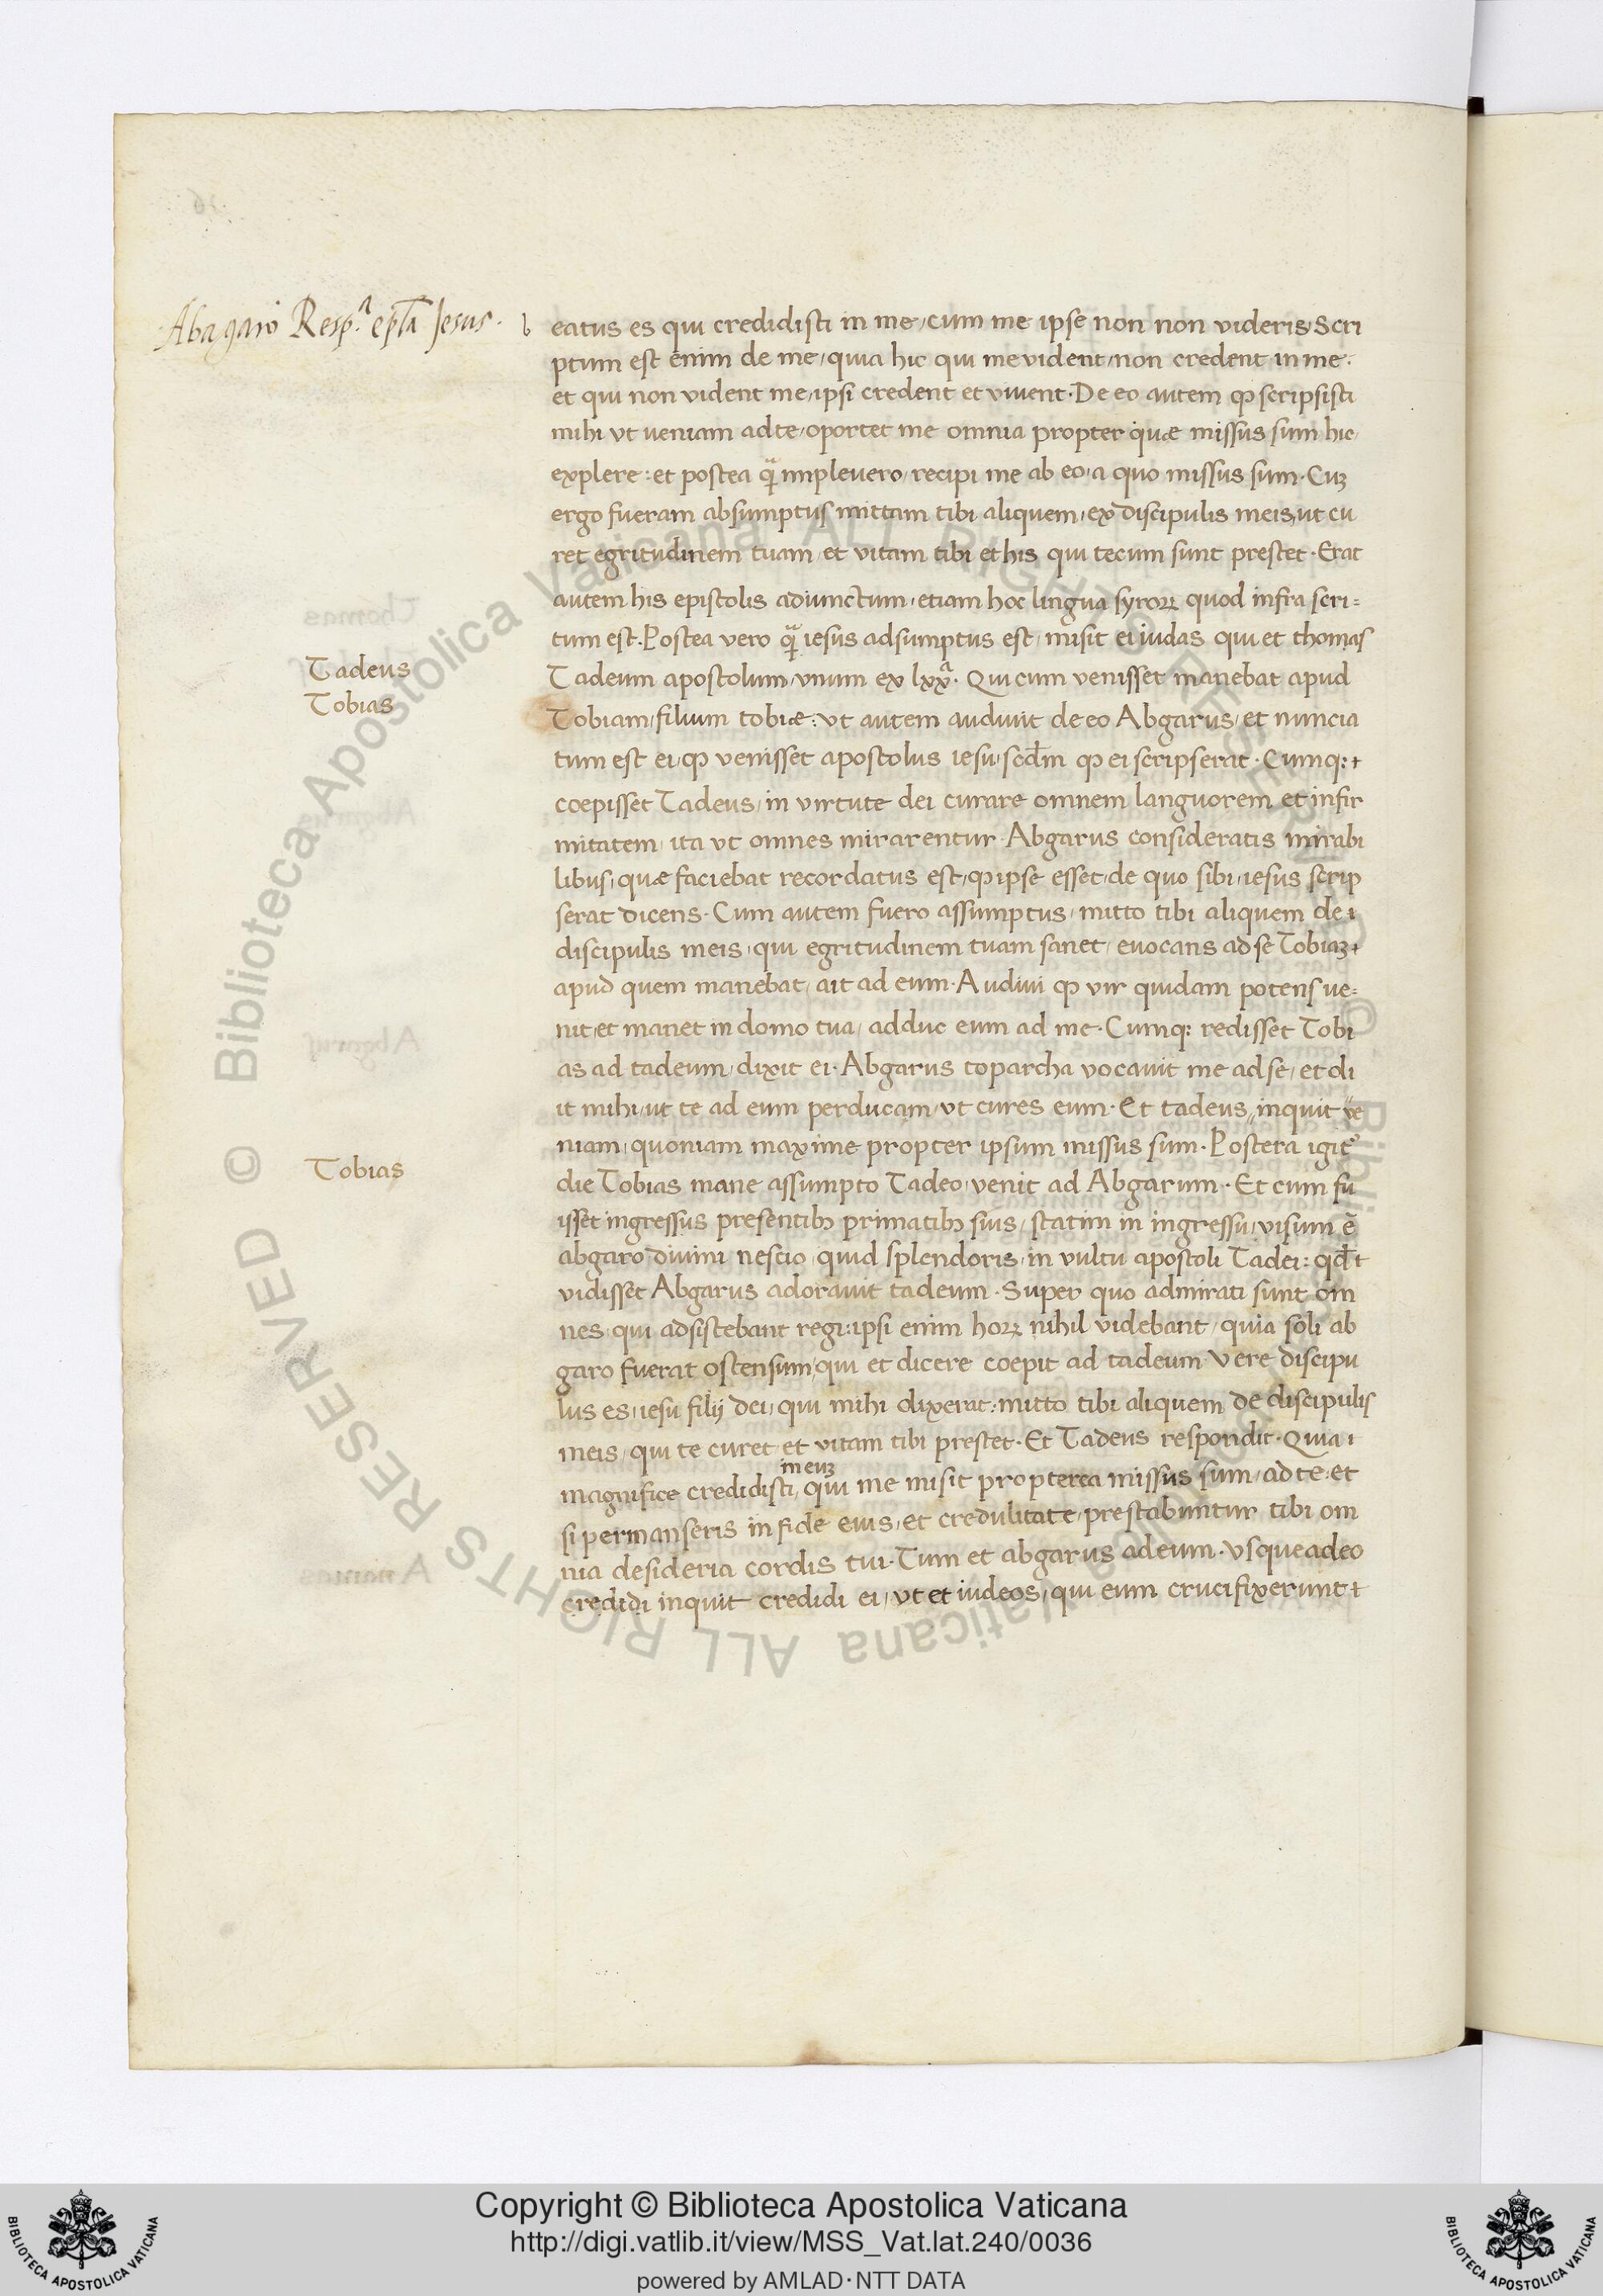 Abagaro Resp.ª ep̄la Jesus.
b eatus es qui credidisti in me, cum me ipse non non videris, Scri
ptum est enim de me, quia hic qui me vident, non credent in me.
et qui non vident me, ipsi credent et vivent. De eo autem ꝙ scripsisti
mihi vt veniam ad te, oportet me omnia propter quæ missus sum hic,
explere: et postea qͣ implevero, recipi me ab eo, a quo missus sum. Cuꝫ
ergo fueram absumptus mittam tibi aliquem, ex discipulis meis, ut cu
ret egritudinem tuam, et vitam tibi et his qui tecum sunt prestet. Erat
autem his epistolis adiunctum, etiam hoc lingua syroꝝ quod infra scri=
tum est. Postea vero qͣ iesus adsumptus est, misit ei iudas qui et thomas
Tadeus
Tadeum apostolum, vnum ex lxxª. Qui cum venisset manebat apud
Tobias
Tobiam, filium tobiæ: vt autem audiuit de eo Abgarus, et nuncia
tum est ei, ꝙ venisset apostolus iesu, scd̄m ꝙ ei scripserat. Cumq:
coepisset Tadeus, in virtute dei curare omnem languorem et infir
mitatem, ita vt omnes mirarentur. Abgarus consideratis mirabi
libus, quæ faciebat recordatus est, ꝙ ipse esset, de quo sibi, iesus scrip
serat dicens. Cum autem fuero assumptus, mitto tibi aliquem de ı
discipulis meis, qui egritudinem tuam sanet, euocans ad se Tobiaꝫ
apud quem manebat, ait ad eum. Audiui ꝙ vir quidam potens ve=
nit, et manet in domo tua, adduc eum ad me. Cumq: redisset Tobi
as ad tadeum, dixit ei. Abgarus toparcha vocauit me ad se, et di
it mihi, ut te ad eum perducam, vt cures eum. Et tadeus, inquit ve
niam, quoniam maxime propter ipsum missus sum. Postera igit᷑
Tobias
die Tobias mane assumpto Tadeo, venit ad Abgarum. Et cum fu
isset ingressus presentibꝫ primatibꝫ suis, statim in ingressu, visum ē
abgaro diuini nescio, quid splendoris, in vultu apostoli Tadei: qd̄
vidisset Abgarus adorauit tadeum. Super quo admirati sunt om
nes, qui adsistebant regi: ipsi enim hoꝝ nihil videbant, quia soli ab
garo fuerat ostensum, qui et dicere coepit ad tadeum. Vere discipu
lus es, iesu filij dei, qui mihi dixerat: mitto tibi aliquem de discipulis
meis, qui te curet, et vitam tibi prestet. Et Tadeus respondit. Quia ı
in euꝫ
magnifice credidisti, qui me misit propterea missus sum, ad te, et
si permanseris in fide eius, et credulitate, prestabuntur tibi om
nia desideria cordis tui. Tum et abgarus ad eum. Vsque adeo
credidi inquit credidi ei, vt et iudeos, qui eum crucifixerunt
© Biblioteca Apostolica Vaticana ALL RIGHTS RESERVED
Copyright © Biblioteca Apostolica Vaticana
http://digi.vatlib.it/view/MSS_Vat.lat.240/0036
powered by AMLAD·NTT DATA
BIBLIOTECA APOSTOLICA VATICANA
BIBLIOTECA APOSTOLICA VATICANA